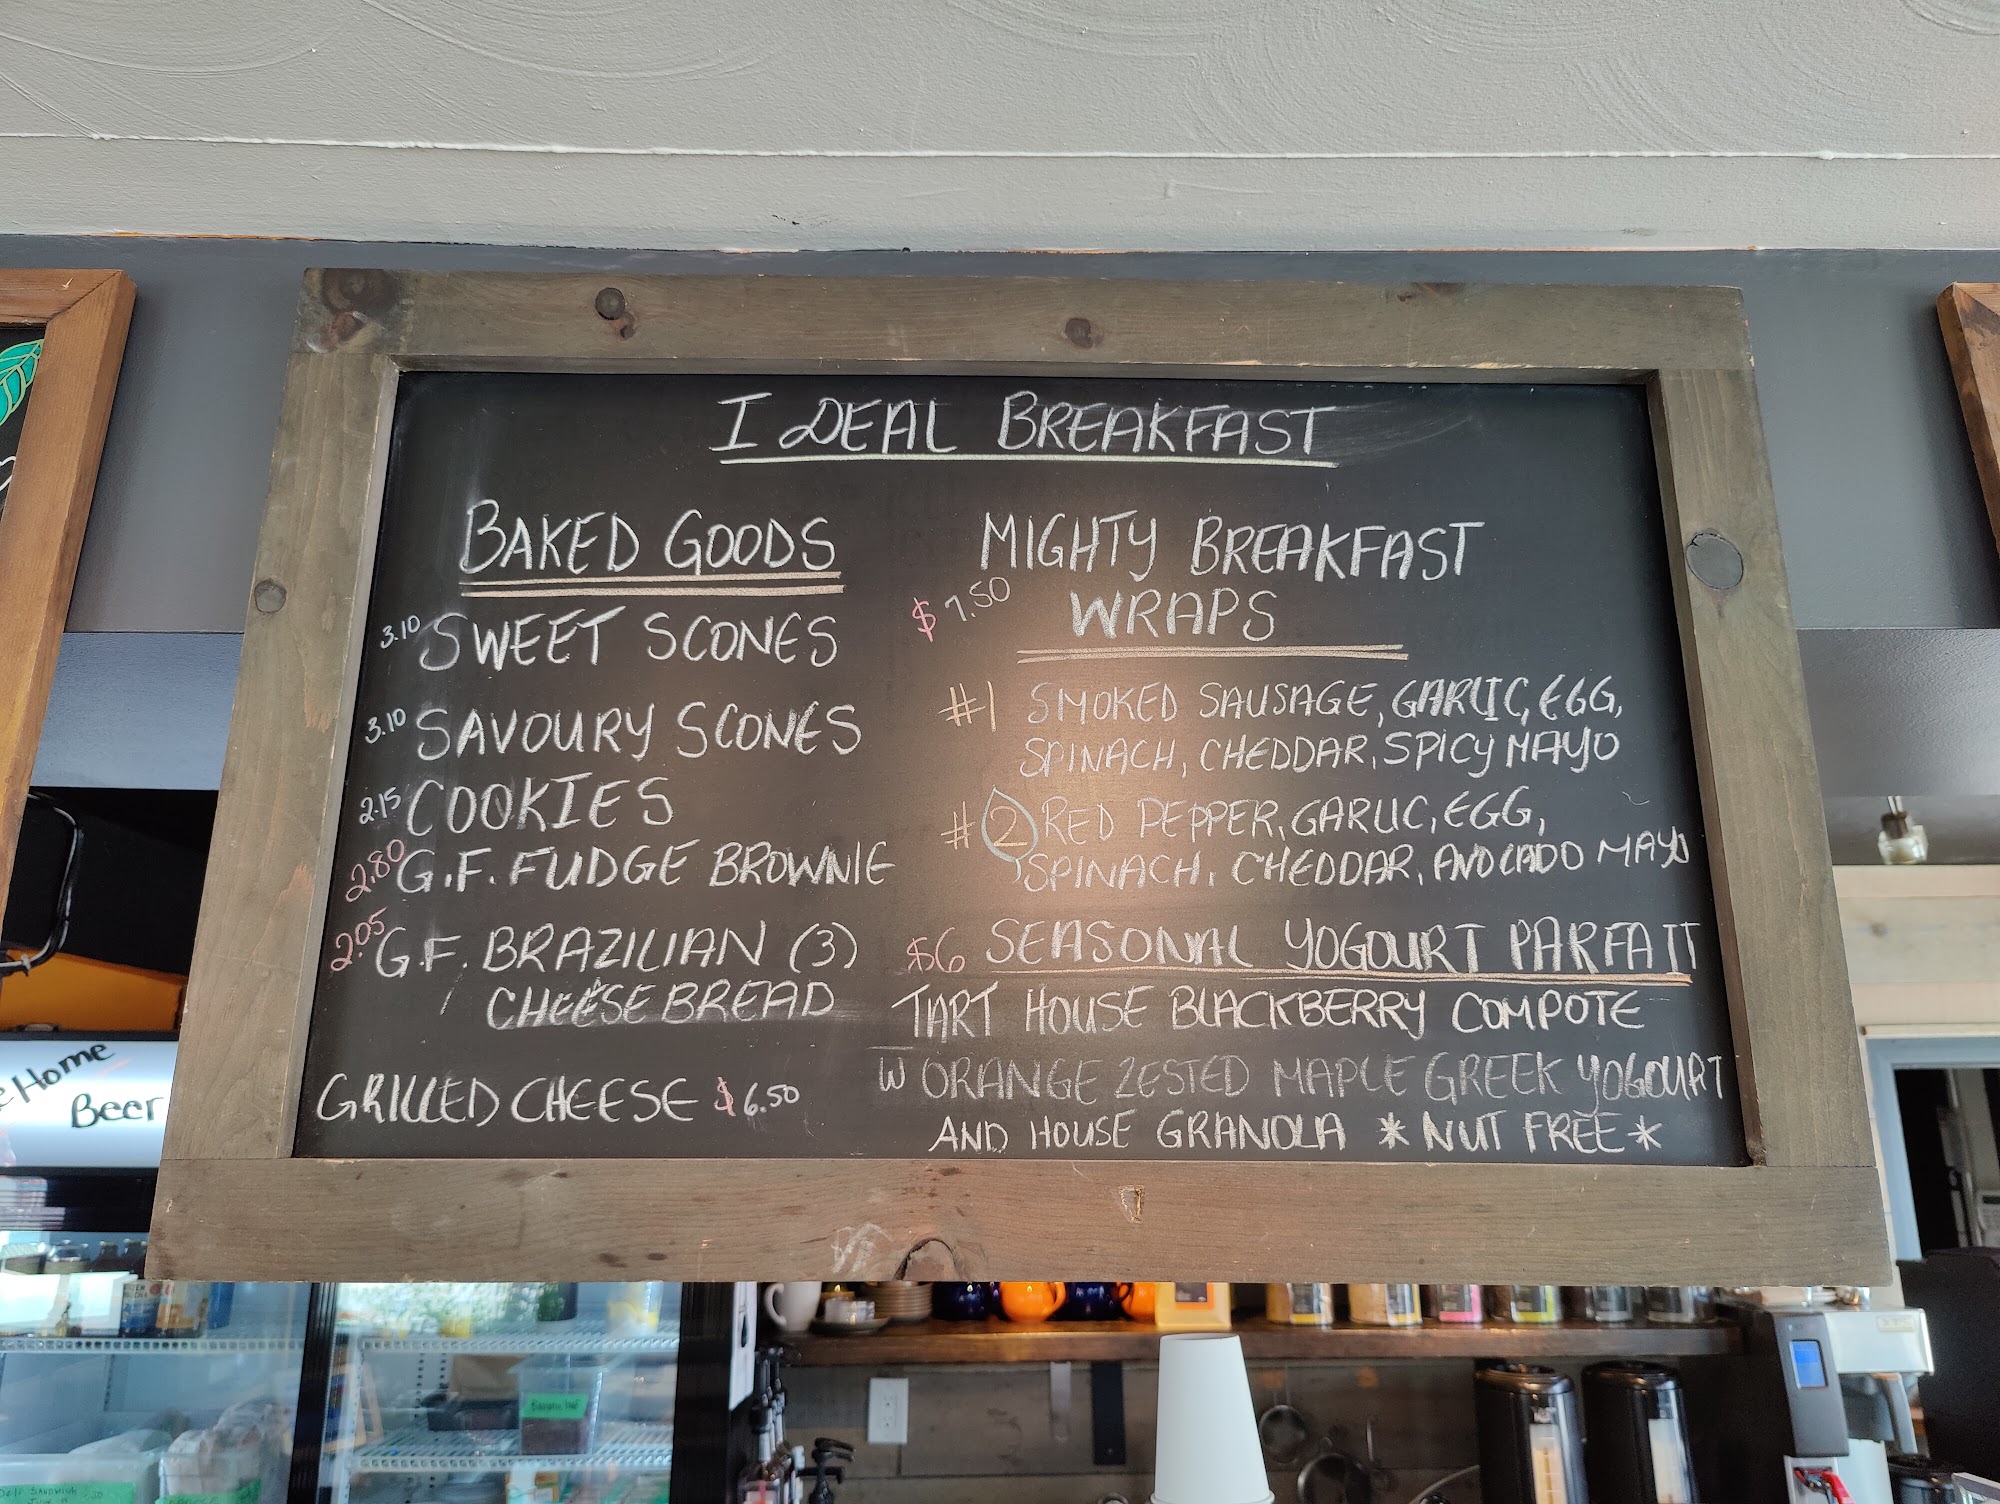 I DEAL BREAKFAST
BAKED GOODS
3.10 SWEET SCONES
3.10 SAVOURY SCONES
2.15 COOKIES
2.80 G.F. FUDGE BROWNIE
2.05 G.F. BRAZILIAN (3)
CHEESE BREAD
GRILLED CHEESE $6.50
MIGHTY BREAKFAST
$7.50 WRAPS
#1 SMOKED SAUSAGE, GARLIC, EGG,
SPINACH, CHEDDAR, SPICY MAYO
#2 RED PEPPER, GARLIC, EGG,
SPINACH, CHEDDAR, AVOCADO MAYO
$6 SEASONAL YOGOURT PARFAIT
TART HOUSE BLACKBERRY COMPOTE
W ORANGE ZESTED MAPLE GREEK YOGOURT
AND HOUSE GRANOLA *NUT FREE*
Home
Beer